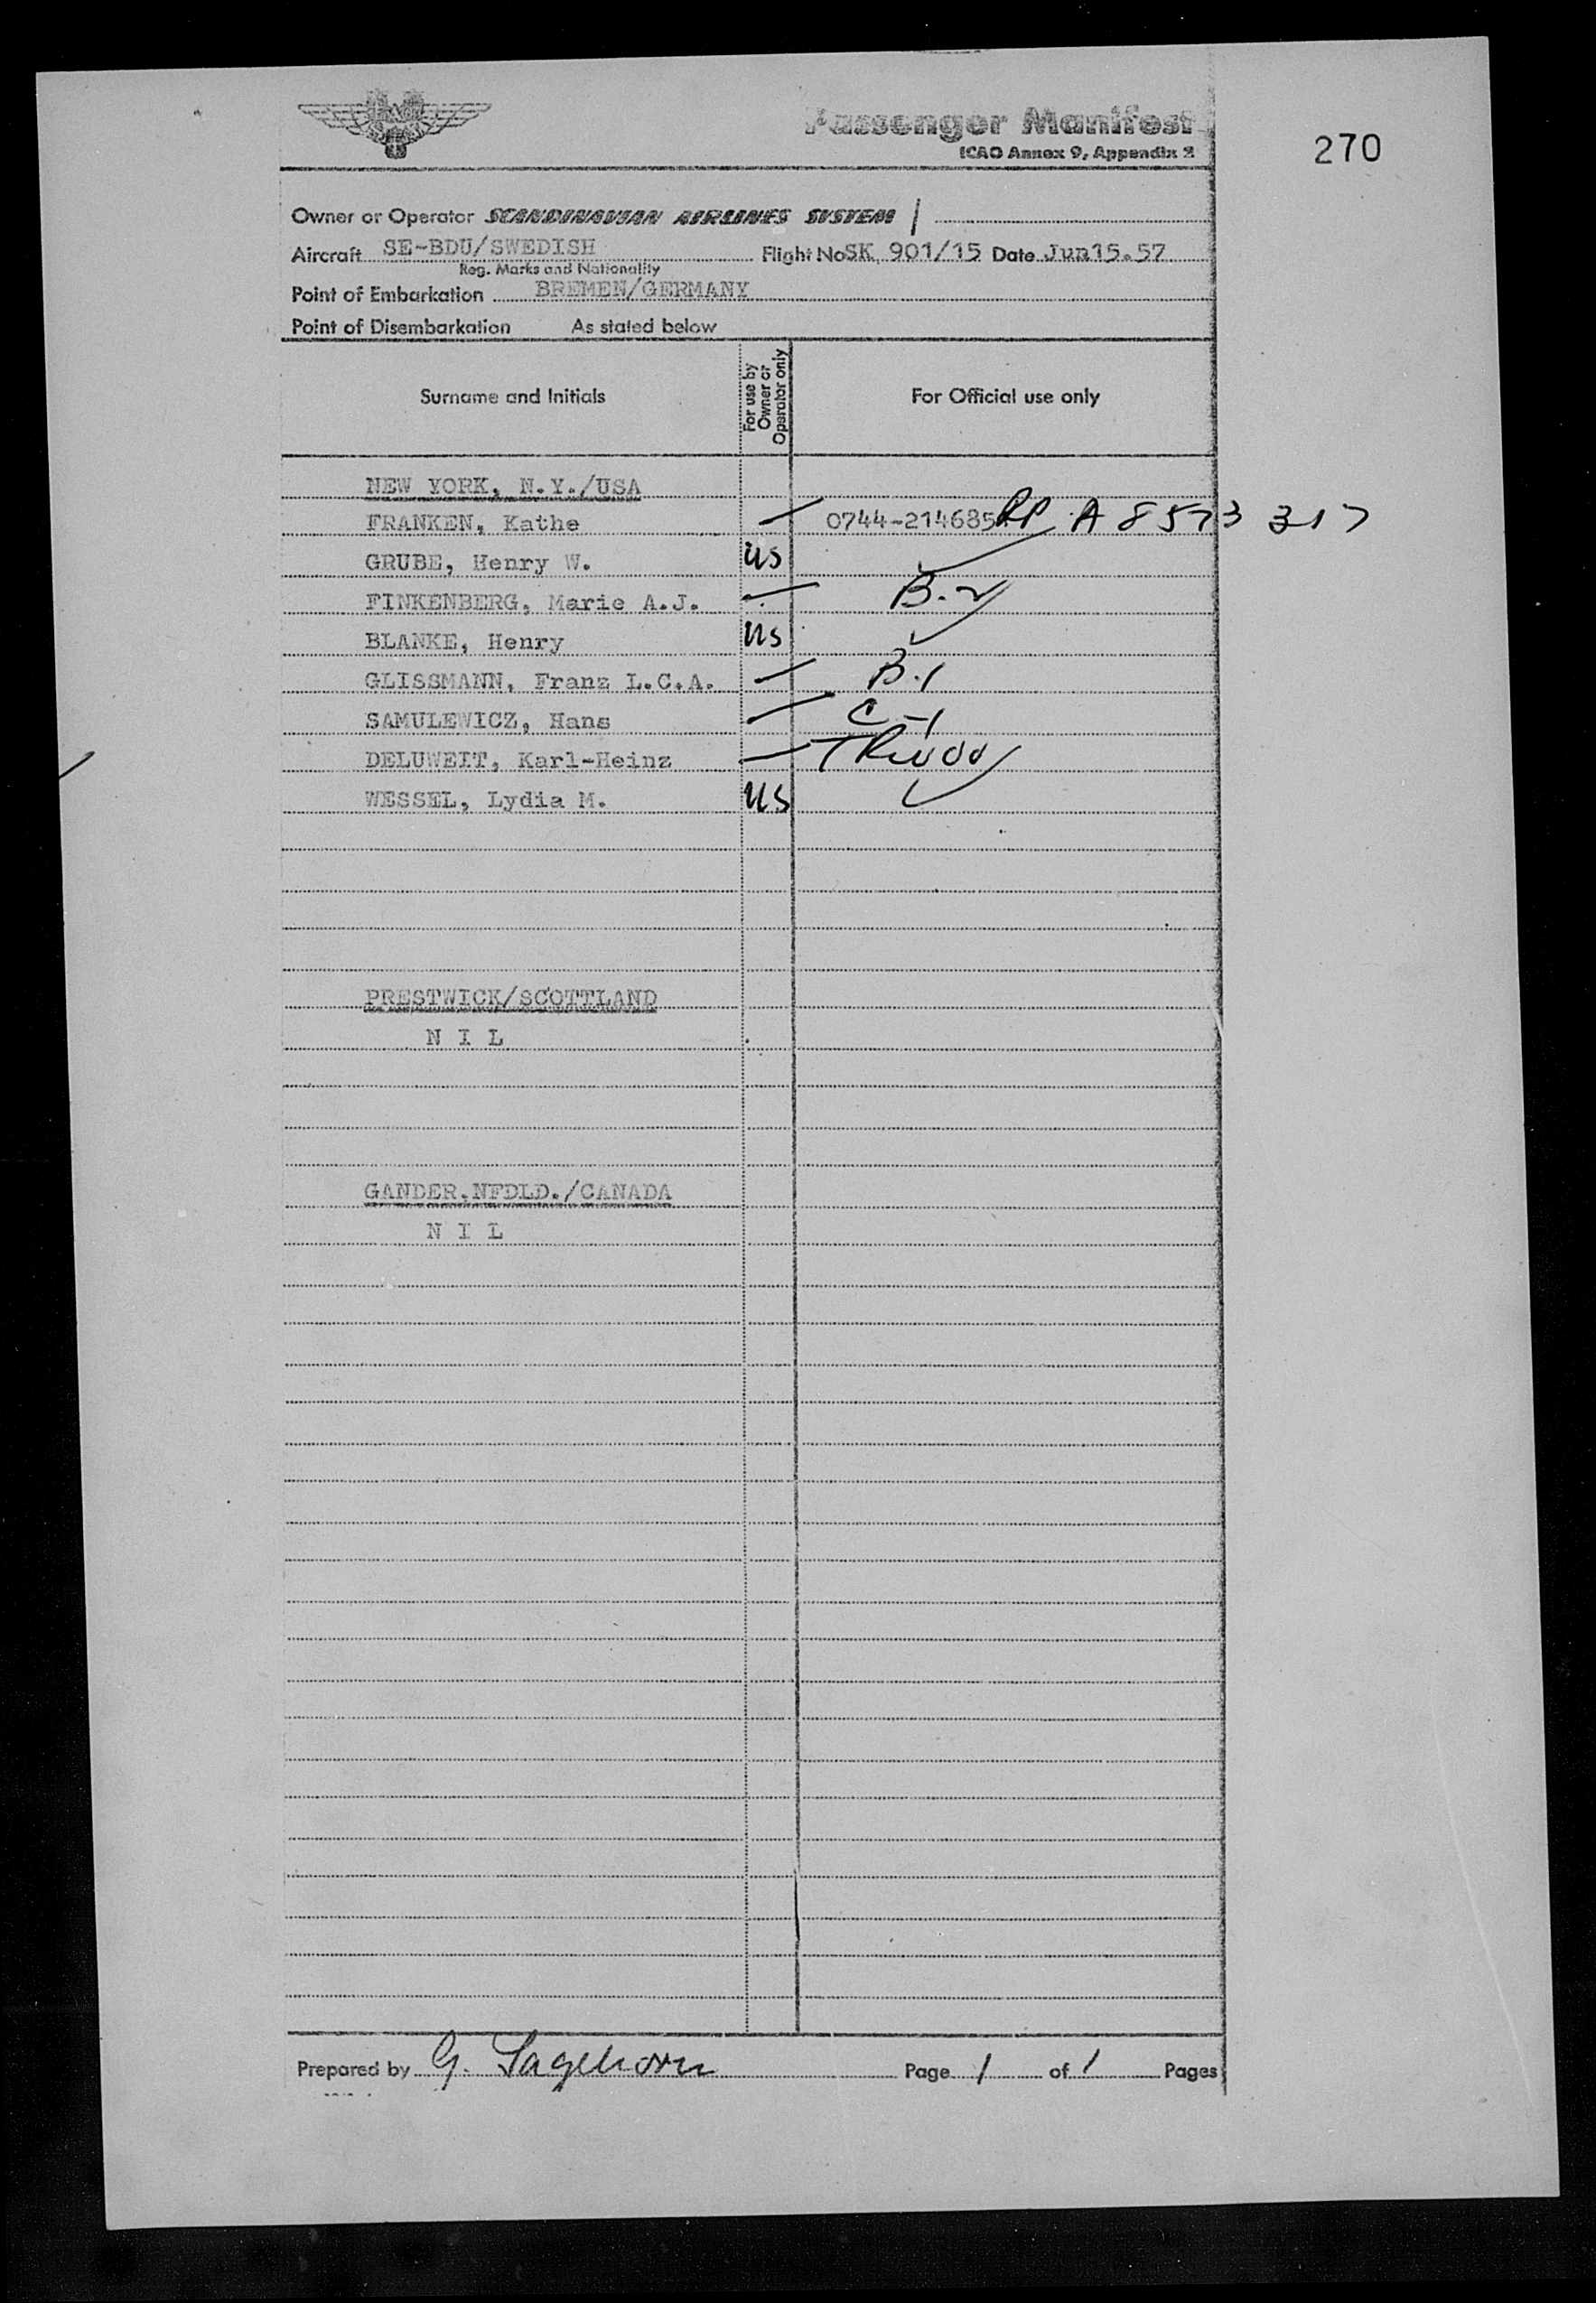 Passenger Manifest
ICAO Annex 9, Appendix 2
270
Owner or Operator SCANDINAVIAN AIRLINES SYSTEM
Aircraft SE-BDU/SWEDISH Flight No SK 901/15 Date Jun15.57
Reg. Marks and Nationality
Point of Embarkation BREMEN/GERMANY
Point of Disembarkation As stated below
Surname and Initials For use by Owner or Operator only For Official use only
NEW YORK, N.Y./USA
FRANKEN, Kathe 0744-214685 A 8573 317
GRUBE, Henry W. US
FINKENBERG, Marie A.J. B.2
BLANKE, Henry US
GLISSMANN, Franz L.C.A. B.1
SAMULEWICZ, Hans C-1
DELUWEIT, Karl-Heinz
WESSEL, Lydia M. US
PRESTWICK/SCOTTLAND
N I L
GANDER,NFDLD./CANADA
N I L
Prepared by G. Sagehorn Page 1 of 1 Pages